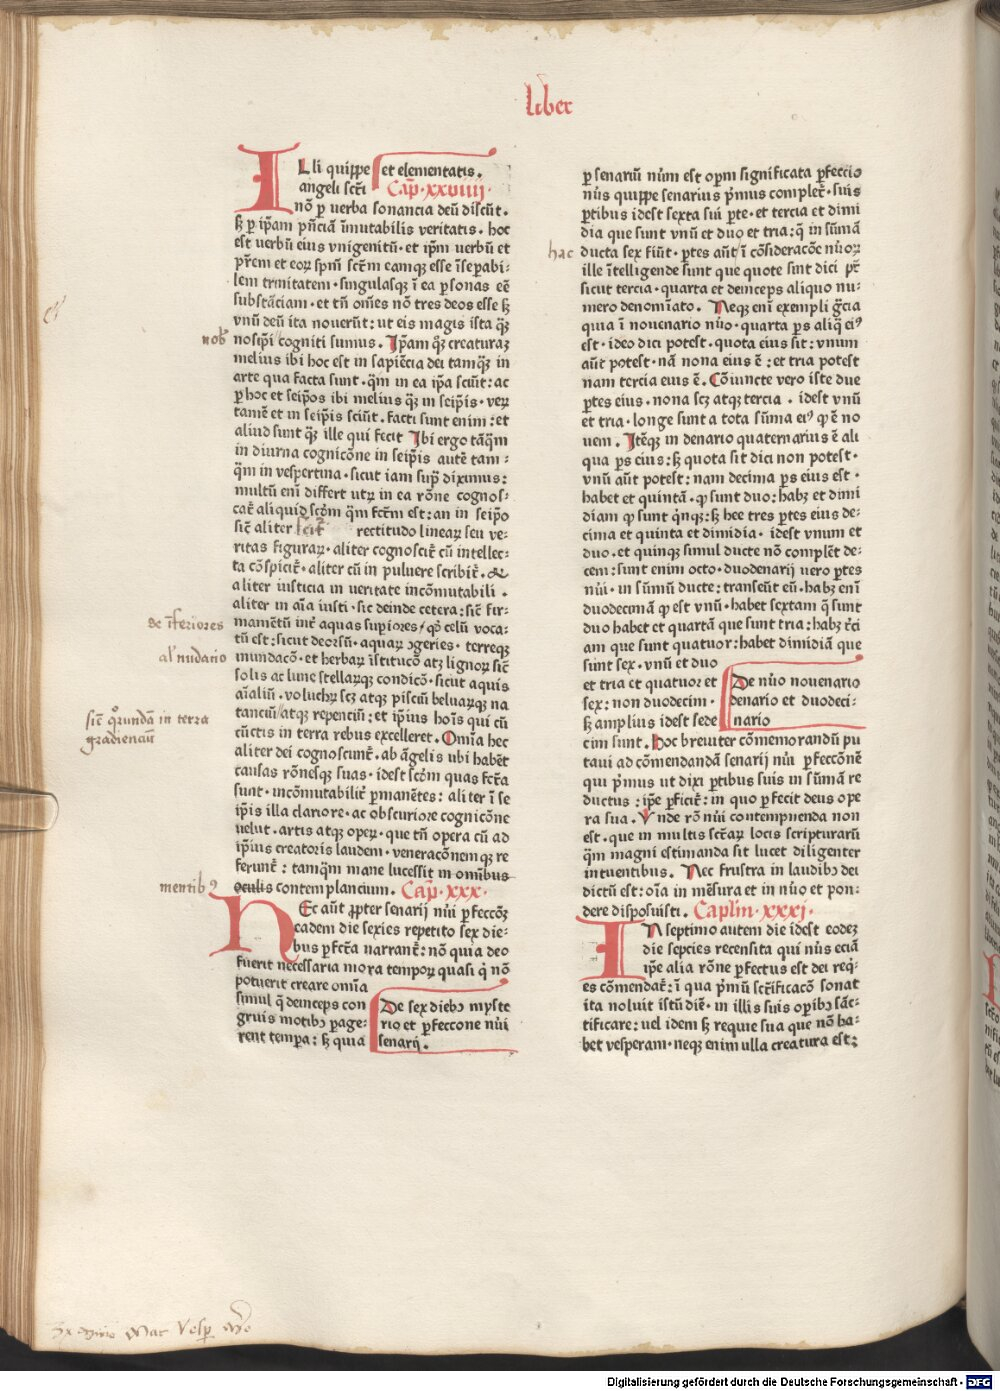 liber
Lli quippe et elementatis.
angeli scti Cap̄. xxviiij.
nō ꝑ verba sonancia deū discūt.
sꝫ ꝑ ip̄am p̄nciā īmutabilis veritatis. hoc
est uerbū eius vnigenitū. et ip̄m uerbū et
pr̄em et eoꝝ sp̄m sc̄m eamqꝫ esse īseꝑabi-
lem trinitatem. singulasqꝫ ī ea ꝑsonas eē
substāciam. et tn̄ om̄es nō tres deos esse sꝫ
vnū deū ita nouerūt: ut eis magis ista qꝫ
nosip̄i cogniti sumus. Ip̄am qꝫ creaturaꝫ
melius ibi hoc est in sapiēcia dei tamqꝫ in
arte qua facta sunt. q̄m in ea ip̄a sciūt: ac
ꝑ hoc et seip̄os ibi melius qꝫ in seip̄is. veꝝ
tamē et in seip̄is sciūt. facti sunt enim: et
aliud sunt qꝫ ille qui fecit Ibi ergo tāq̄m
in diurna cognicōne in seip̄is autē tam-
q̄m in vespertina. sicut iam supͣ diximus:
multū enī differt utꝝ in ea rōne cognos-
cat̄ aliquid sc̄dm q̄m fc̄tm est: an in seip̄o
sic̄ aliter scit̄ rectitudo lineaꝝ seu ve-
ritas figuraꝝ. aliter cognoscit̄ cū intellec-
ta cōspicit̄. aliter cū in puluere scribit̄. &
aliter iusticia in ueritate incōmutabili.
aliter in aīa iusti. sic deinde cetera: sic̄ fir-
mamētū int̄ aquas suꝑiores/ qꝫ celū voca-
tū est: sicut deorsū. aquaꝝ ɔgeries. terreqꝫ
mundacō. et herbaꝝ īstitucō atqꝫ lignoꝝ sic̄
solis ac lune stellaꝝqꝫ condicō. sicut aquis
aīaliū. volucrū scꝫ atqꝫ pisciū beluaꝝqꝫ na
tanciū/ atqꝫ repenciū: et ip̄ius hoīs qui cū
cūctis in terra rebus excelleret. Omīa hec
aliter dei cognoscunt̄. ab āgelis ubi habēt
causas rōnesqꝫ suas. idest sc̄dm quas fc̄ta
sunt. incōmutabilit̄ ꝑmanētes: aliter ī se
ip̄is illa clariore. ac obscuriore cognicōne
uelut. artis atqꝫ oꝑeꝝ. que tn̄ opera cū ad
ip̄ius creatoris laudem. veneracōnemqꝫ re
ferunt̄: tamq̄m mane lucessit in om̄ibus
oculis contemplancium. Cap̄. xxx.
NEc aūt ꝓpter senarij nūi ꝑfeccōeꝫ
eadem die sexies repetito sex die-
bus ꝑfc̄ta narrant̄: nō quia deo
fuerit necessaria mora tempoꝝ quasi q̇ nō
potuerit creare omīa
simul q̄ deinceps con
gruis motibꝫ ꝑage-
rent tempͣa: sꝫ quia
De sex diebꝫ myste
rio et ꝑfeccone nūi
senarij.
nobꝭ
de īferiores
al' nudario
sic̄ qͦrundā in terra
gradienciū
mentibꝫ
ꝑ senariū nūm est opm̄ significata ꝑfeccio
nūs quippe senarius pͥmus complet̄. suis
ꝑtibus idest sexta sui ꝑte. et tercia et dimi
dia que sunt vnū et duo et tria: q̄ in sūmā
ducta sex fiūt. ꝑtes aūt/ ī cōsideracōe nūoꝝ
ille ītelligende sunt que quote sint dici pn̄t
sicut tercia. quarta et deinceps aliquo nu-
mero denomīato. Neqꝫ enī exempli gr̄cia
quia ī nouenario nūo. quarta ꝑs aliq̄ ei⁹
est. ideo dici potest. quota eius sit: vnum
aūt potest. nā nona eius ē: et tria potest
nam tercia eius ē. Cōiuncte vero iste due
ꝑtes eius. nona scꝫ atqꝫ tercia. idest vnū
et tria. longe sunt a tota sūma ei⁹ ꝙ ē no
uem. Itēqꝫ in denario quaternarius ē ali
qua ꝑs eius: sꝫ quota sit dici non potest.
vnū aūt potest: nam decima ꝑs eius est.
habet et quintā. ꝙ sunt duo: habꝫ et dimi
diam ꝙ sunt qͥnqꝫ: sꝫ hee tres ꝑtes eius de-
cima et quinta et dimidia. idest vnum et
duo. et quinqꝫ simul ducte nō complēt de-
cem: sunt enim octo. duodenarij uero ꝑtes
nūi. in sūmū ducte: transeūt eū. habꝫ enī
duodecimā ꝙ est vnū. habet sextam q̄ sunt
duo habet et quartā que sunt tria: habꝫ t̄ci
am que sunt quatuor: habet dimidiā que
sunt sex. vnū et duo
et tria et quatuor et
sex: non duodecim.
sꝫ amplius idest sede
De nūo nouenario
denario et duodeci-
nario
cim sunt. Hoc breuiter cōmemorandū pu
taui ad cōmendandā senarij nūi ꝑfeccōnē
qui pͥmus ut dixi ꝑtibus suis in sūmā re
ductus: ip̄e ꝑficit̄: in quo ꝑfecit deus ope
ra sua. Vnde rō nūi contempnenda non
est. que in multis sc̄taꝝ locis scripturarū
q̄m magni estimanda sit lucet diligenter
intuentibus. Nec frustra in laudibꝫ dei
dictū est: oīa in mēsura et in nūo et pon-
dere disposuisti. Caplm̄. xxxj.
IN septimo autem die idest eodeꝫ
die sepcies recensita qui nūs eciā
ip̄e alia rōne ꝑfectus est dei req̇-
es cōmendat̄: ī qua pͥmū sc̄tificacō sonat
ita noluit istū diē. in illis suis oꝑibꝫ sāc-
tificare: uel idem sꝫ requie sua que nō ha-
bet vesperam. neqꝫ enim ulla creatura est:
hac
Digitalisierung gefördert durch die Deutsche Forschungsgemeinschaft - DFG